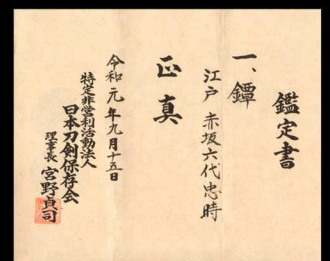 鑑定書
一、鐔
江戸 赤坂六代忠時
正真
令和元年九月十五日
特定非営利活動法人
日本刀剣保存会
理事長 宮野貞司